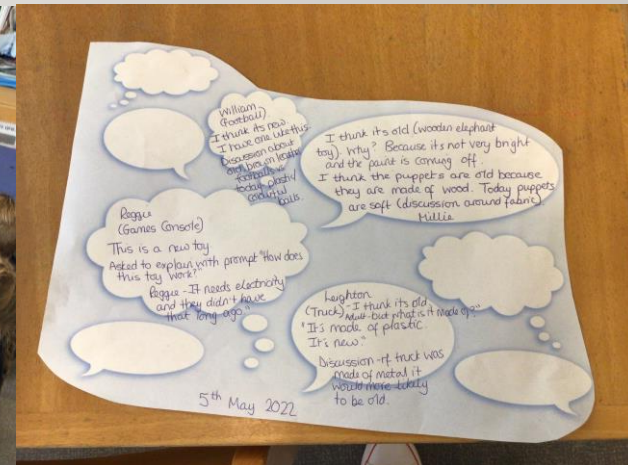 William
(Football)
I think its new
I have one like this
Discussion about
old brown leather
footballs vs
today plastic
colourful
balls.
I think its old (wooden elephant
toy). Why? Because its not very bright
and the paint is coming off.
I think the puppets are old because
they are made of wood. Today puppets
are soft (discussion around fabric).
Millie
Reggie
(Games Console)
This is a new toy
Asked to explain with prompt "How does
this toy work?"
Reggie - It needs electricity
and they didn't have
that long ago."
Leighton
(Truck) - "I think its old
Adult - but what is it made of?"
"It's made of plastic
It's new."
Discussion - if truck was
made of metal it
would more likely
to be old.
5th May 2022